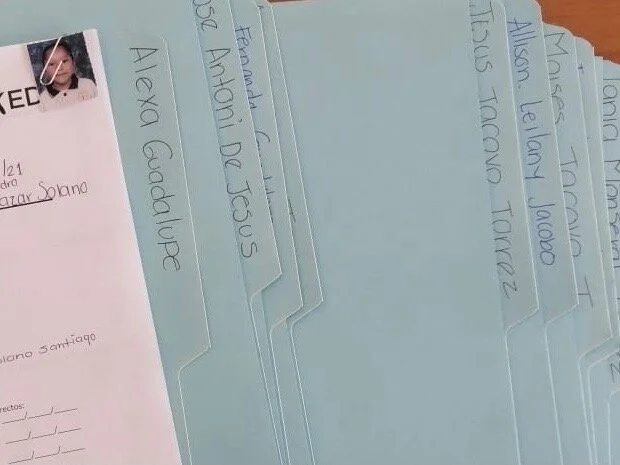 KED
/21
dro
azar Solano
olano Santiago
rectos:
Alexa Guadalupe
ose Antoni De Jesus
Fernanda
Jesus Taravo Torrez
Allison. Leilany Jacobo
Moises Taravo T